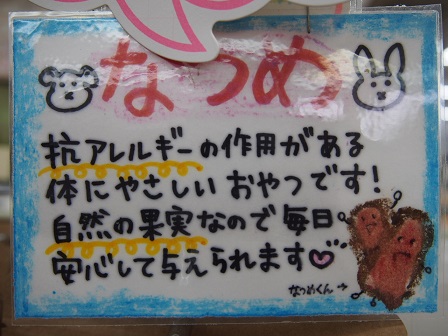 なつめ
抗アレルギーの作用がある
体にやさしいおやつです!
自然の果実なので毎日
安心して与えられます♡
なつめくん→